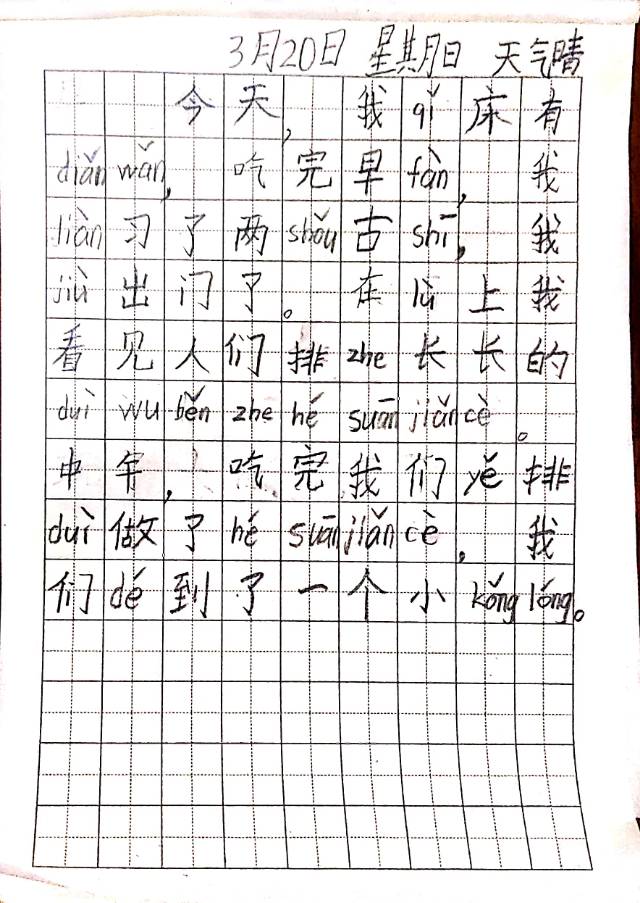 3月20日 星期日 天气晴
今天,我qǐ床有
diǎn wǎn,吃完早fàn,我
liàn习了两shǒu古shī,我
jiù出门了。在lù上我
看见人们排zhe长长的
duì wu běn zhe hé suān jiǎn cè。
中午,吃完我们yě排
duì做了hé suān jiǎn cè,我
们dé到了一个小kǒng lóng。